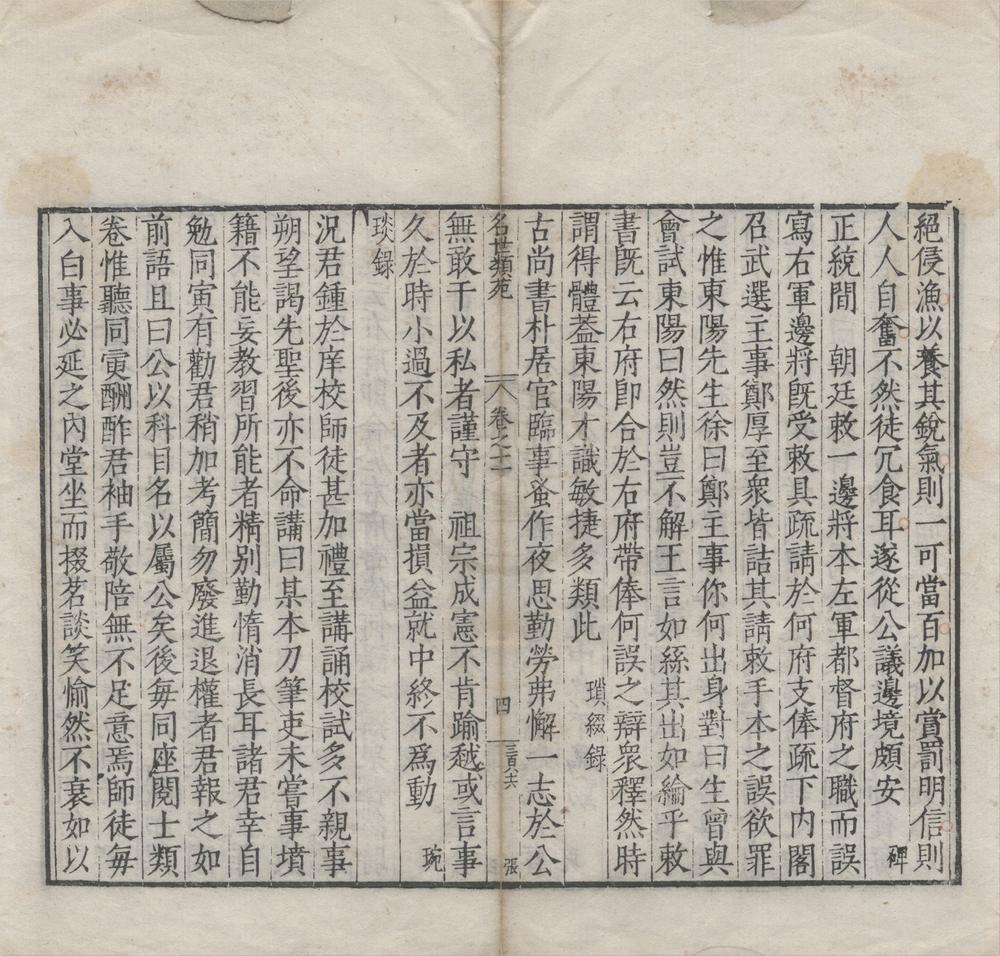 絕侵漁以養其銳氣則一可當百加以賞罰明信則
人人自奮不然徒冗食耳遂從公議邊境頗安 碑
正統間 朝廷敕一邊將本左軍都督府之職而誤
寫右軍邊將既受敕具疏請於何府支俸疏下內閣
召武選主事鄭厚至衆皆詰其請敕手本之誤欲罪
之惟東陽先生徐曰鄭主事你何出身對曰生曾與
會試東陽曰然則豈不解王言如絲其出如綸乎敕
書既云右府卽合於右府帶俸何誤之辯衆釋然時
謂得體葢東陽才識敏捷多類此 瑣綴錄
古尚書朴居官臨事蚤作夜思勤勞弗懈一志於公
名世類苑 卷之二 四 三百六 張
無敢干以私者謹守 祖宗成憲不肯踰越或言事
久於時小過不及者亦當損益就中終不爲動 琬
琰錄
況君鍾於庠校師徒甚加禮至講誦校試多不親事
朔望謁先聖後亦不命講曰某本刀筆吏未嘗事墳
籍不能妄教習所能者精別勤惰消長耳諸君幸自
勉同寅有勸君稍加考簡勿廢進退權者君報之如
前語且曰公以科目名以屬公矣後每同座閱士類
卷惟聽同寅酬酢君袖手敬陪無不足意焉師徒每
入白事必延之內堂坐而掇茗談笑愉然不衰如以